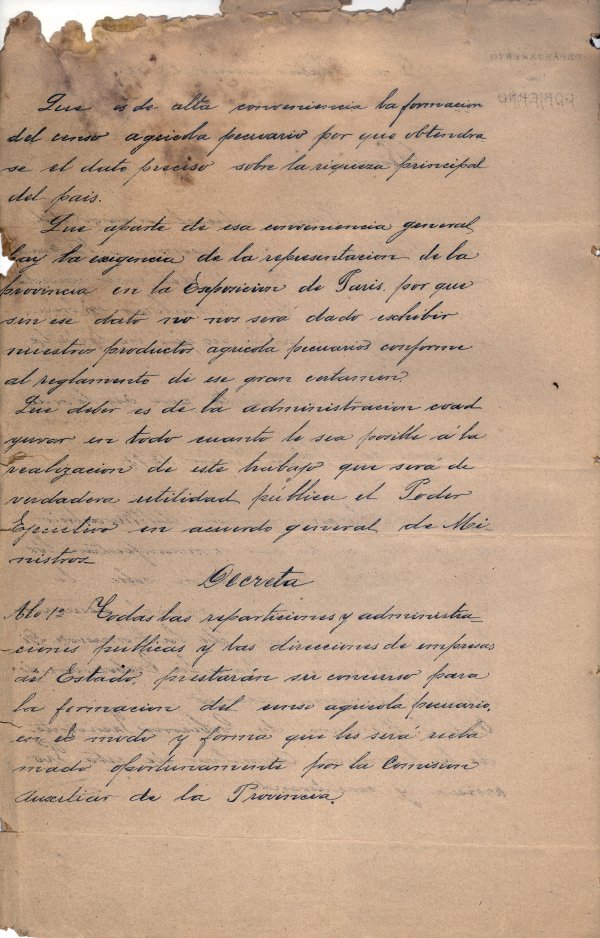 Que es de alta conveniencia la formacion
del censo agricola pecuario por que obtendra
se el dato preciso sobre la riqueza principal
del pais.
Que aparte de esa conveniencia general
hay la exigencia de la representacion de la
provincia en la Exposicion de Paris, por que
sin ese dato no nos será dado exhibir
nuestros productos agricola pecuarios conforme
al reglamento de ese gran certamen.
Que deber es de la administracion coad
yuvar en todo cuanto le sea posible á la
realizacion de este trabajo que será de
verdadera utilidad pública el Poder
Ejecutivo en acuerdo general de Mi
nistros
Decreta
Alo 1º Todas las reparticiones y administra
ciones publicas y las direcciones de empresas
del Estado, prestarán su concurso para
la formacion del censo agricola pecuario,
en el modo y forma que les será recla
mado oportunamente por la Comision
Auxiliar de la Provincia.
DEPARTAMENTO
DE
GOBIERNO